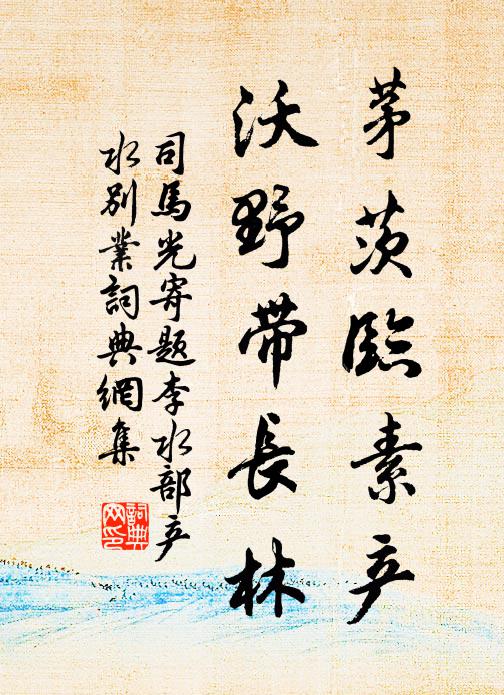 茅茨臨素产
沃野帶長林
司馬光寄題李水部产
水別業詞典網集
詞典网印